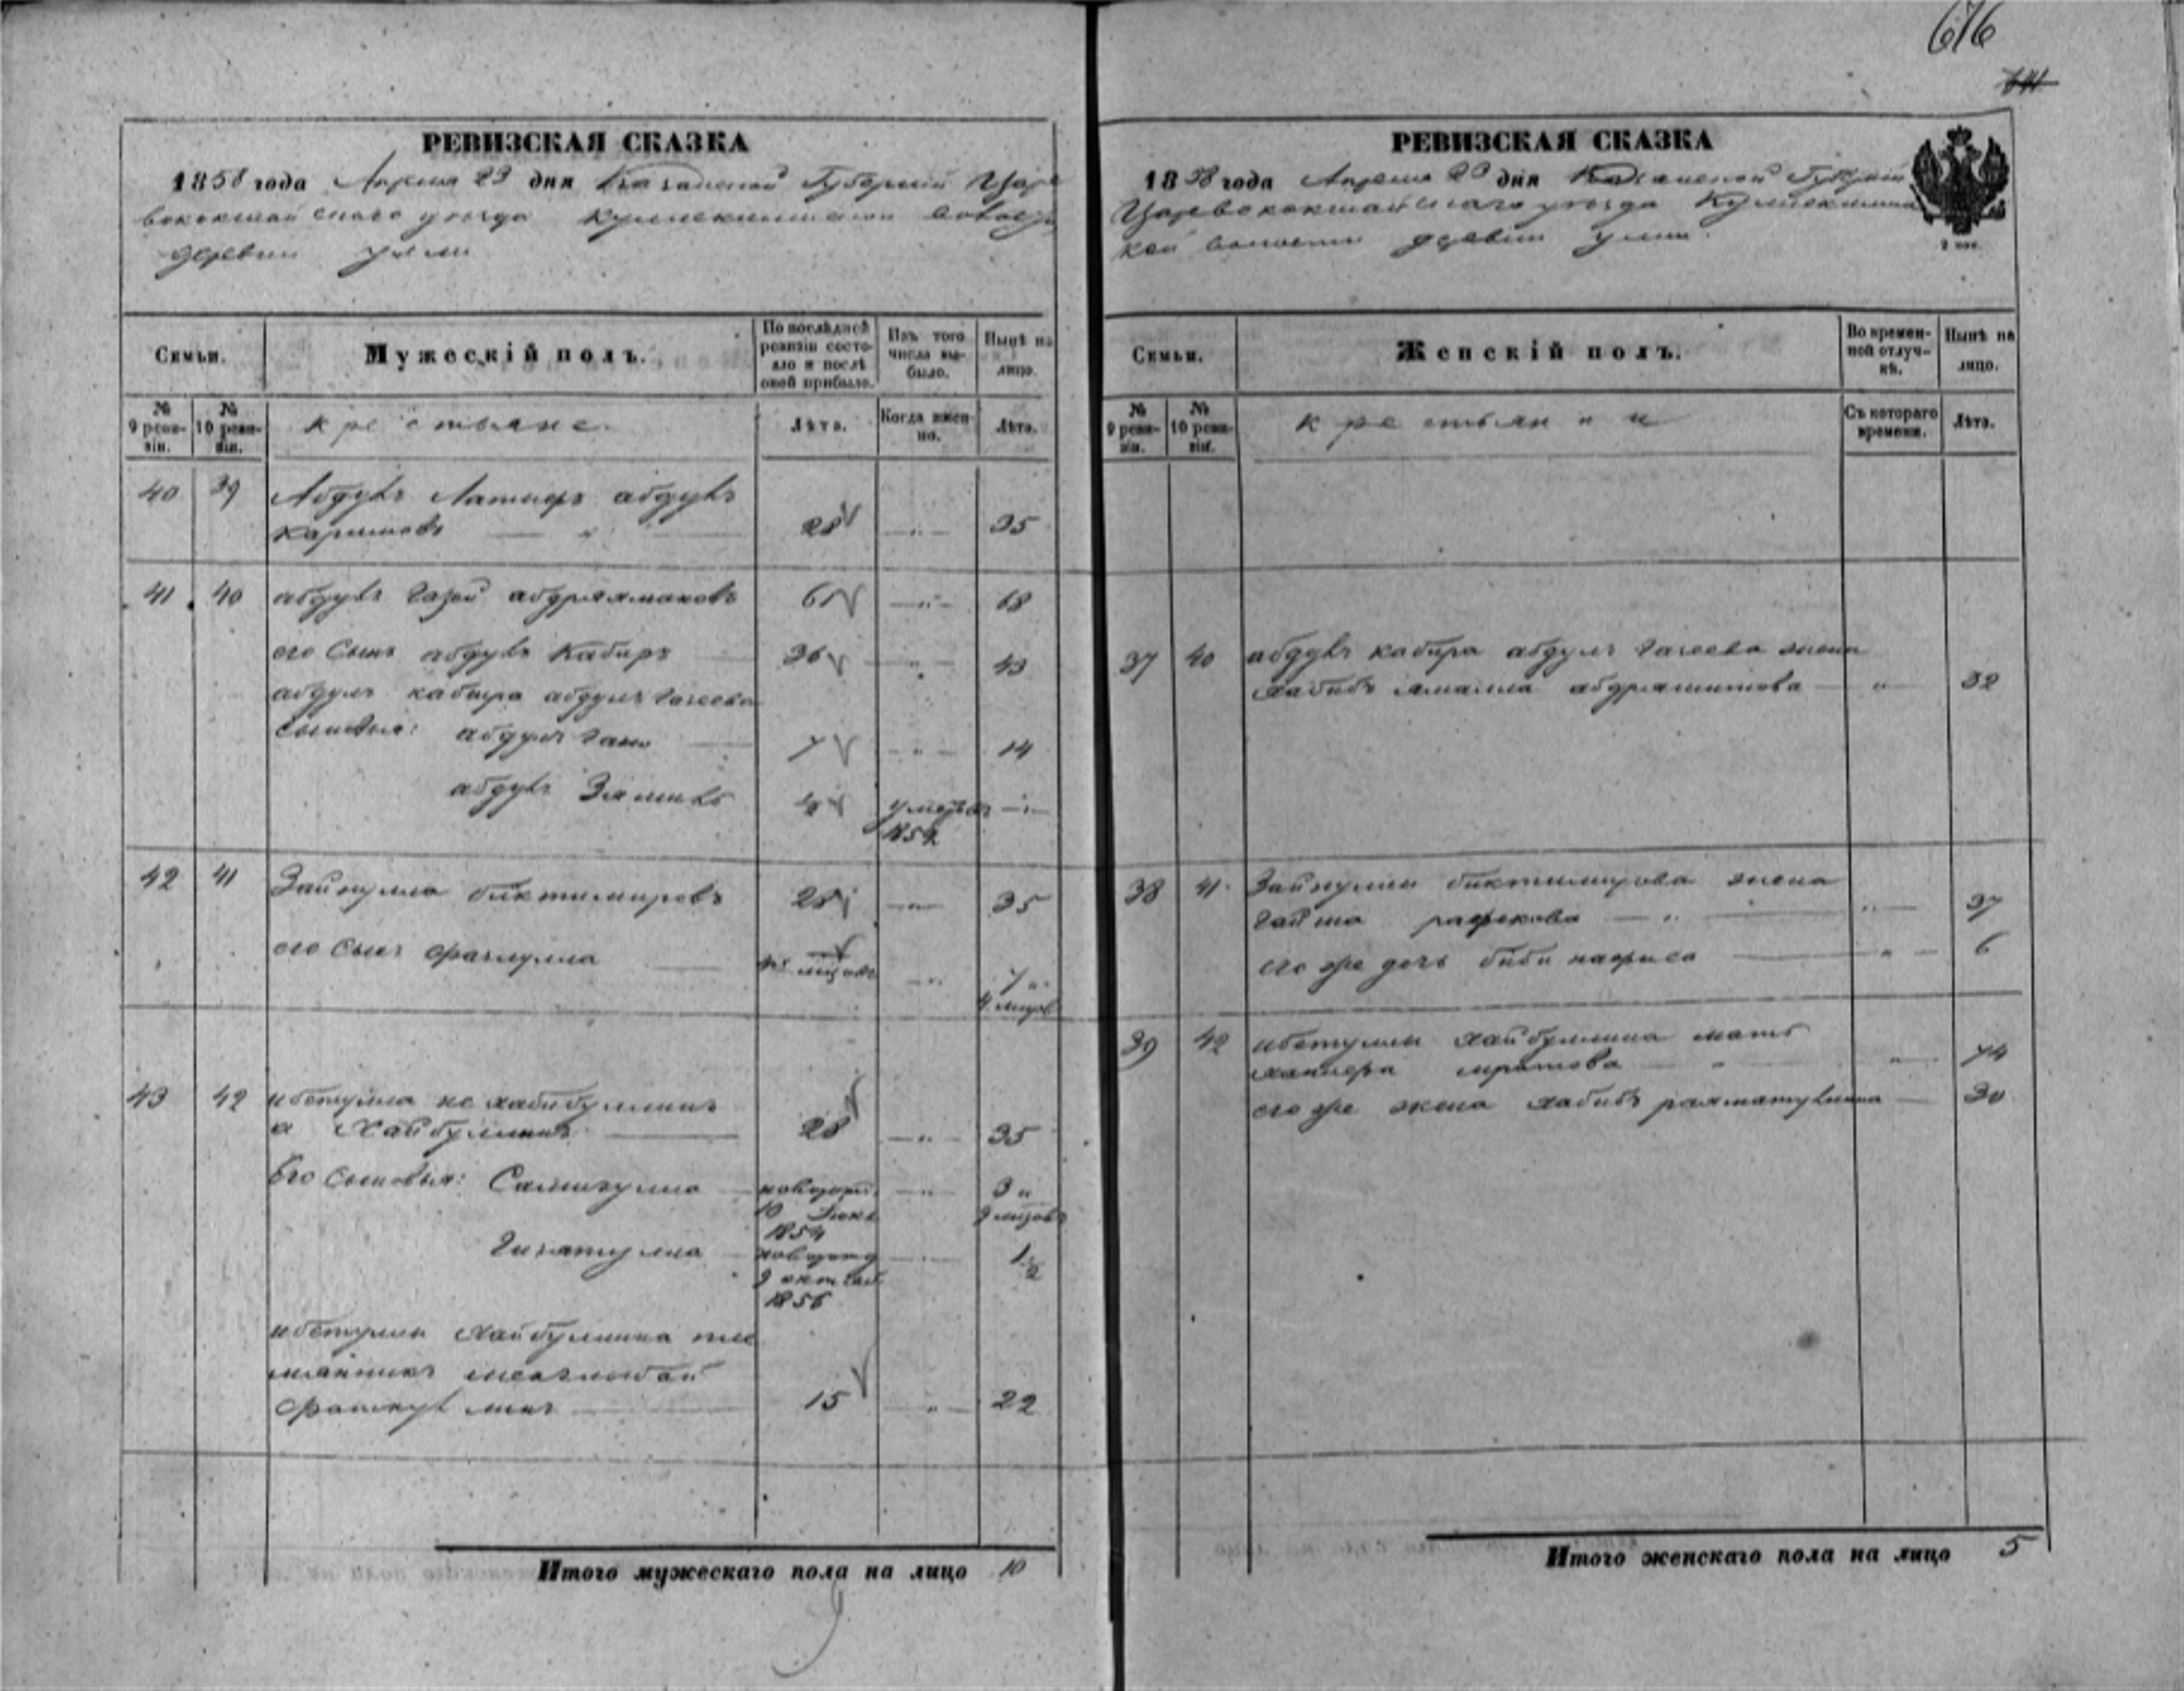 676
РЕВИЗСКАЯ СКАЗКА
1858 года Апреля 23 дня Казанской Губернии Царе
вококшайскаго уезда Кулле волос
деревни
Семьи.
Мужескій полъ.
По послѣдней ревизіи состо-
яло и послѣ
оной прибыло.
Изъ того
числа вы-
было.
Нынѣ на
лицо.
№
9 реви-
зіи.
№
10 реви-
зіи.
крестьяне
Лѣта.
Когда имен-
но.
Лѣта.
40 39 Абдулъ Латифъ абдулъ
Каримовъ 28 35
41 40 абдулъ Газей абдряхмановъ 61 68
его Сынъ абдулъ Кабиръ 36 43
абдулъ кабира абдулъ Газеева
Сыновья: абдулъ Гани 7 14
абдулъ 4 умеръ
1854
42 41 Зайнулла биктимировъ 28 35
его Сынъ Фазлулла 7
4 месяц
43 42 ибетулла не хабибуллинъ
а Хайбуллинъ 28 35
Его Сыновья: Самигулла новорож 3 и
10 1854 9 месяцов
новорож
9 октяб 1 1/2
1856
ибетуллы Хайбуллина пле
мянникъ
Фаткуллинъ 15 22
Итого мужескаго пола на лицо 10
РЕВИЗСКАЯ СКАЗКА
1858 года Апреля 23 дня Казанской Губернии
Царевококшайскаго уезда
кой волости деревни
2 кос.
Семьи.
Женскій полъ.
Во времен-
ной отлуч-
кѣ.
Нынѣ на
лицо.
№
9 реви-
зіи.
№
10 реви-
зіи.
крестьянки
Съ котораго
времени.
Лѣта.
37 40 абдулъ кабира абдулъ Газеева жена
хабибъ ямалла абдряшитова 32
38 41 Зайнуллы биктимирова жена
Гайша рафикова 37
его же дочь биби нафиса 6
39 42 ибетуллы Хайбуллина мать
74
его же жена хабибъ рахматуллина 30
Итого женскаго пола на лицо 5